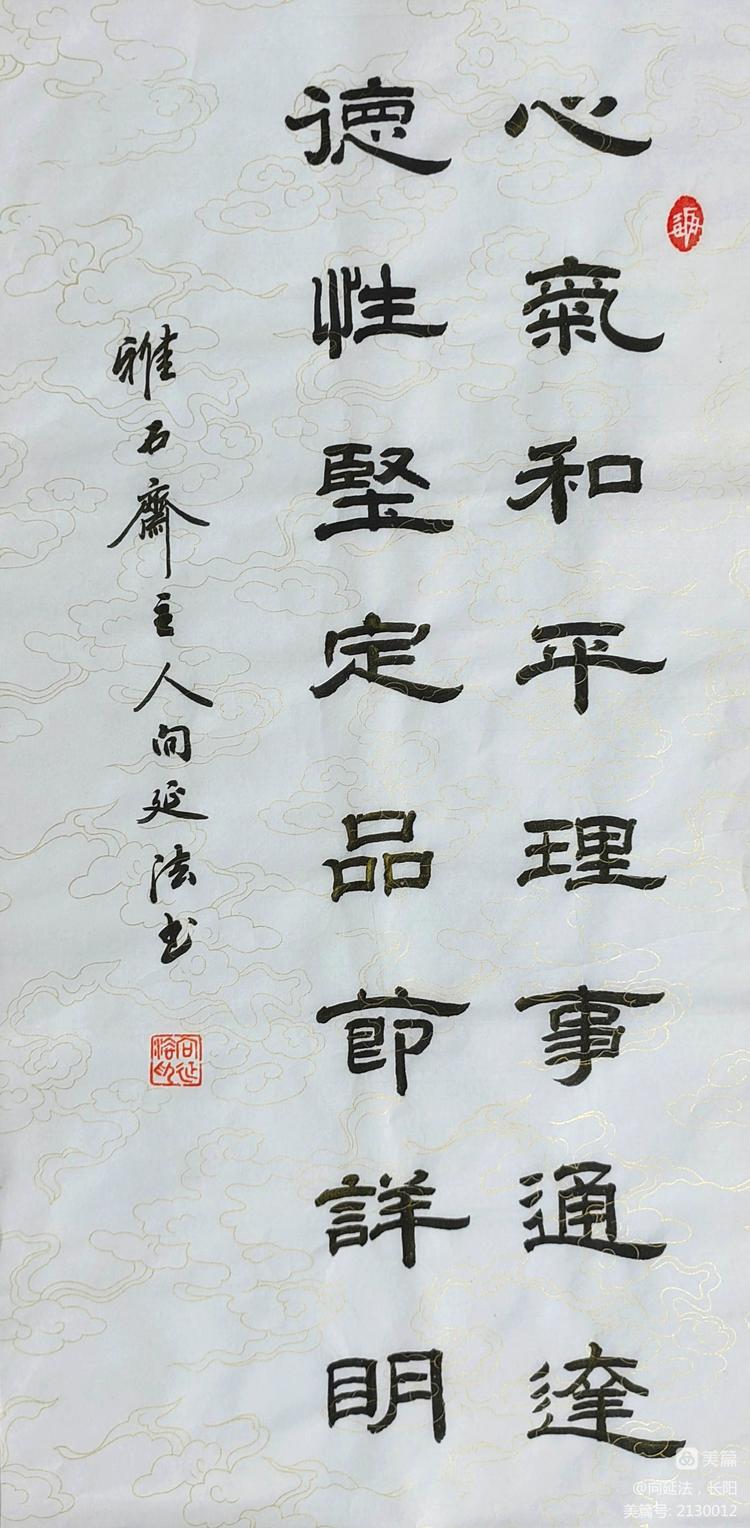 心氣和平理事通達
德性堅定品節詳明
雅石齋主人向延法书
美篇
@向延法，长阳
美篇号: 2130012